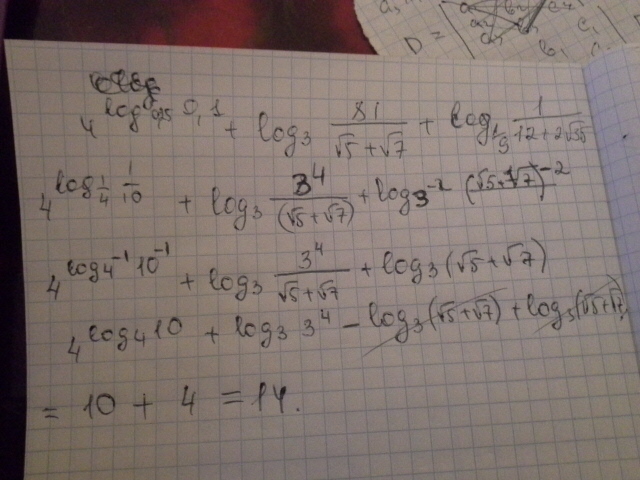 D =
4^{log_{0,25} 0,1} + log_3 \frac{81}{√5+√7} + log_{1/9} \frac{1}{12+2√35}
4^{log_{1/4} \frac{1}{10}} + log_3 \frac{3^4}{(√5+√7)} + log_{3^{-2}} (√5+√7)^{-2}
4^{log_{4^{-1}} 10^{-1}} + log_3 \frac{3^4}{√5+√7} + log_3 (√5+√7)
4^{log_4 10} + log_3 3^4 - log_3 (√5+√7) + log_3 (√5+√7)
= 10 + 4 = 14.